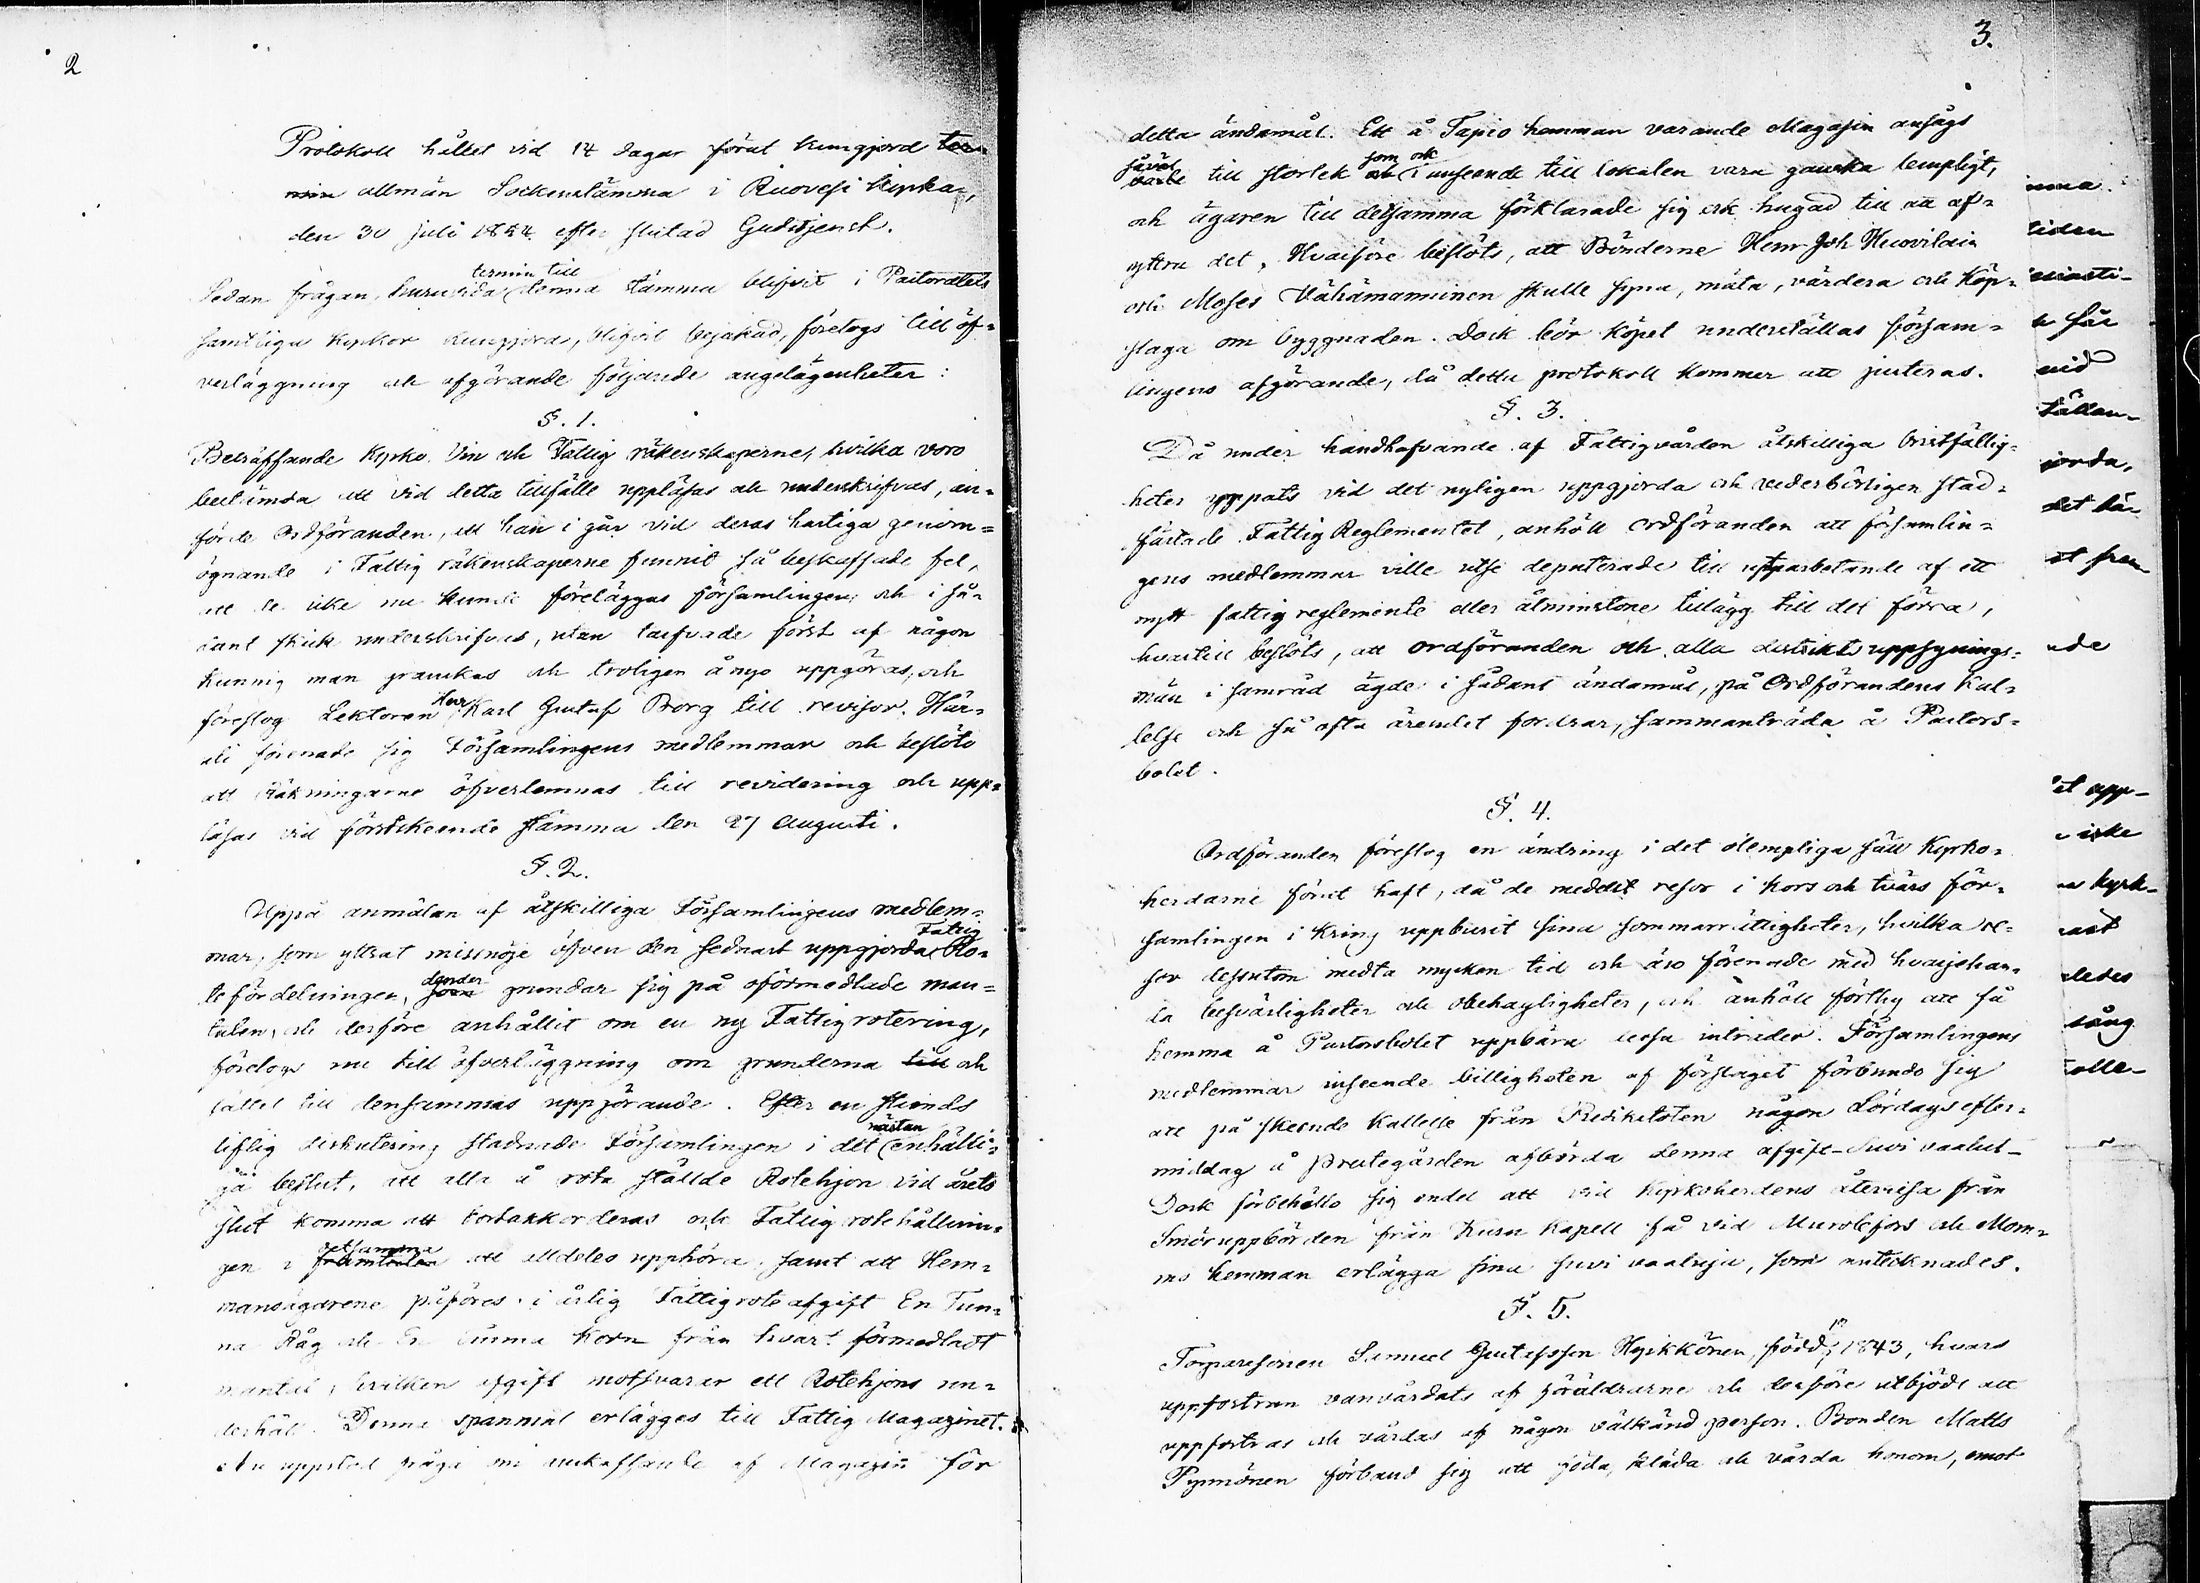 2
Protokoll hållet vid 14 dagar förut kungjord ter-
min allmän Sockenstämma i Ruovesi kyrka,
den 30 juli 1854 efter slutad Gudstjenst.
Sedan frågan, huruvida termin till denna stämma blifvit i Pastoratets
samtliga kyrkor kungjord, blifvit bejakad, företogs till öf=
verläggning och afgörande följande angelägenheter:
§. 1.
Beträffande Kyrko, Vin och Fattig räkenskaperne, hvilka voro
bestämda att vid detta tillfälle uppläsas och underskrifvas, an=
förde Ordföranden, att han i går vid deras hastiga genom=
ögnande i Fattig räkenskaperne funnit så beskaffade fel,
att de icke nu kunde föreläggas församlingen och i så=
dant skick underskrifvas, utan tarfvade först af någon
kunnig man granskas och troligen ånyo uppgöras, och
föreslog Lektoren Herr Karl Gustaf Borg till revisor. Här=
uti förenade sig Församlingens medlemmar och beslöts
att Räkningarne öfverlemnas till revidering och upp=
läsas vid förstskeende stämma den 27 Augusti.
§. 2.
Uppå anmälan af åtskilliga Församlingens medlem=
mar, som yttrat missnöje öfver den sednast uppgjorda Fattig Ro=
tefördelningen, som grundar sig på oförmedlade man=
talen, och derföre anhållit om en ny Fattigrotering,
företogs nu till öfverläggning om grunderna till och
sättet till densammas uppgörande. Efter en stunds
liflig diskutering stadnade Församlingen i det nästan enhälli=
ga beslut, att alla å rota ställde Rotehjon vid årets
slut komma att bortackorderas och Fattig rotehållnin=
gen i detsamma framtiden att alldeles upphöra, samt att Hem=
mansägarene påföres i årlig Fattigrote afgift En Tun=
na Råg och En tunna Korn från hvart förmedladt
mantal, hvilken afgift motsvarar ett Rotehjons un=
derhåll. Denna spannmål erlägges till Fattig Magazinet.
Nu uppstod fråga om anskaffande af Magazin för
3.
detta ändamål. Ett å Tapio hemman varande Magasin ansågs
såväl till storlek som ock i anseende till lokalen vara ganska lempligt,
och ägaren till detsamma förklarade sig ock hugad till att af=
yttra det, Hvarföre beslöts, att Bönderne Henr Joh Huovilain
och Moses Vähämanninen skulle syna, mäta, värdera och köp=
slaga om byggnaden. Dock bör köpet underställas försam=
lingens afgörande, då detta protokoll kommer att justeras.
§. 3.
Då under handhafvande af Fattigvården åtskilliga bristfällig=
heter yppats vid det nyligen uppgjorda och vederbörligen stad=
fästade Fattig Reglementet, anhöll ordföranden att församlin=
gens medlemmar ville utse deputerade till upparbetande af ett
nytt fattig reglemente eller åtminstone tillägg till det förra,
hvartill beslöts, att ordföranden och alla distrikts uppsynings=
män i samråd ägde i sådant ändamål, på Ordförandens kal=
lelse och så ofta ärendet fordrar, sammanträda å Pastors=
bolet.
§. 4.
Ordföranden föreslog en ändring i det olempliga sätt Kyrko=
herdarne förut haft, då de meddelst resor i kors och tvärs för=
samlingen i kring uppburit sina sommarrättigheter, hvilka re=
sor dessutom medta mycken tid och äro förenade med hvarjehan=
da besvärligheter och obehagligheter, och anhöll förthy att få
hemma å Pastorsbolet uppbära dessa intrader. Församlingens
medlemmar inseende billigheten af förslaget förbundo sig
att på skeende kallelse från Predikstolen någon Lördags efter=
middag å prestegården afbörda denna afgift - Suvi vaalut -
Dock förbehöllo sig endel att vid Kyrkoherdens återresa från
Smöruppbörden från Kuru Kapell få vid Murolefors och Mom=
mo hemman erlägga sina suvi vaaluja, som antecknades.
§. 5.
Torparesonen Samuel Gustafsson Hyrkkönen, född 1843, hvars
uppfostran vanvårdats af föräldrarne och derföre utbjöds att
uppfostras och vårdas af någon välkänd person. Bonden Matts
Pynnönen förband sig att föda, kläda och vårda honom, emot